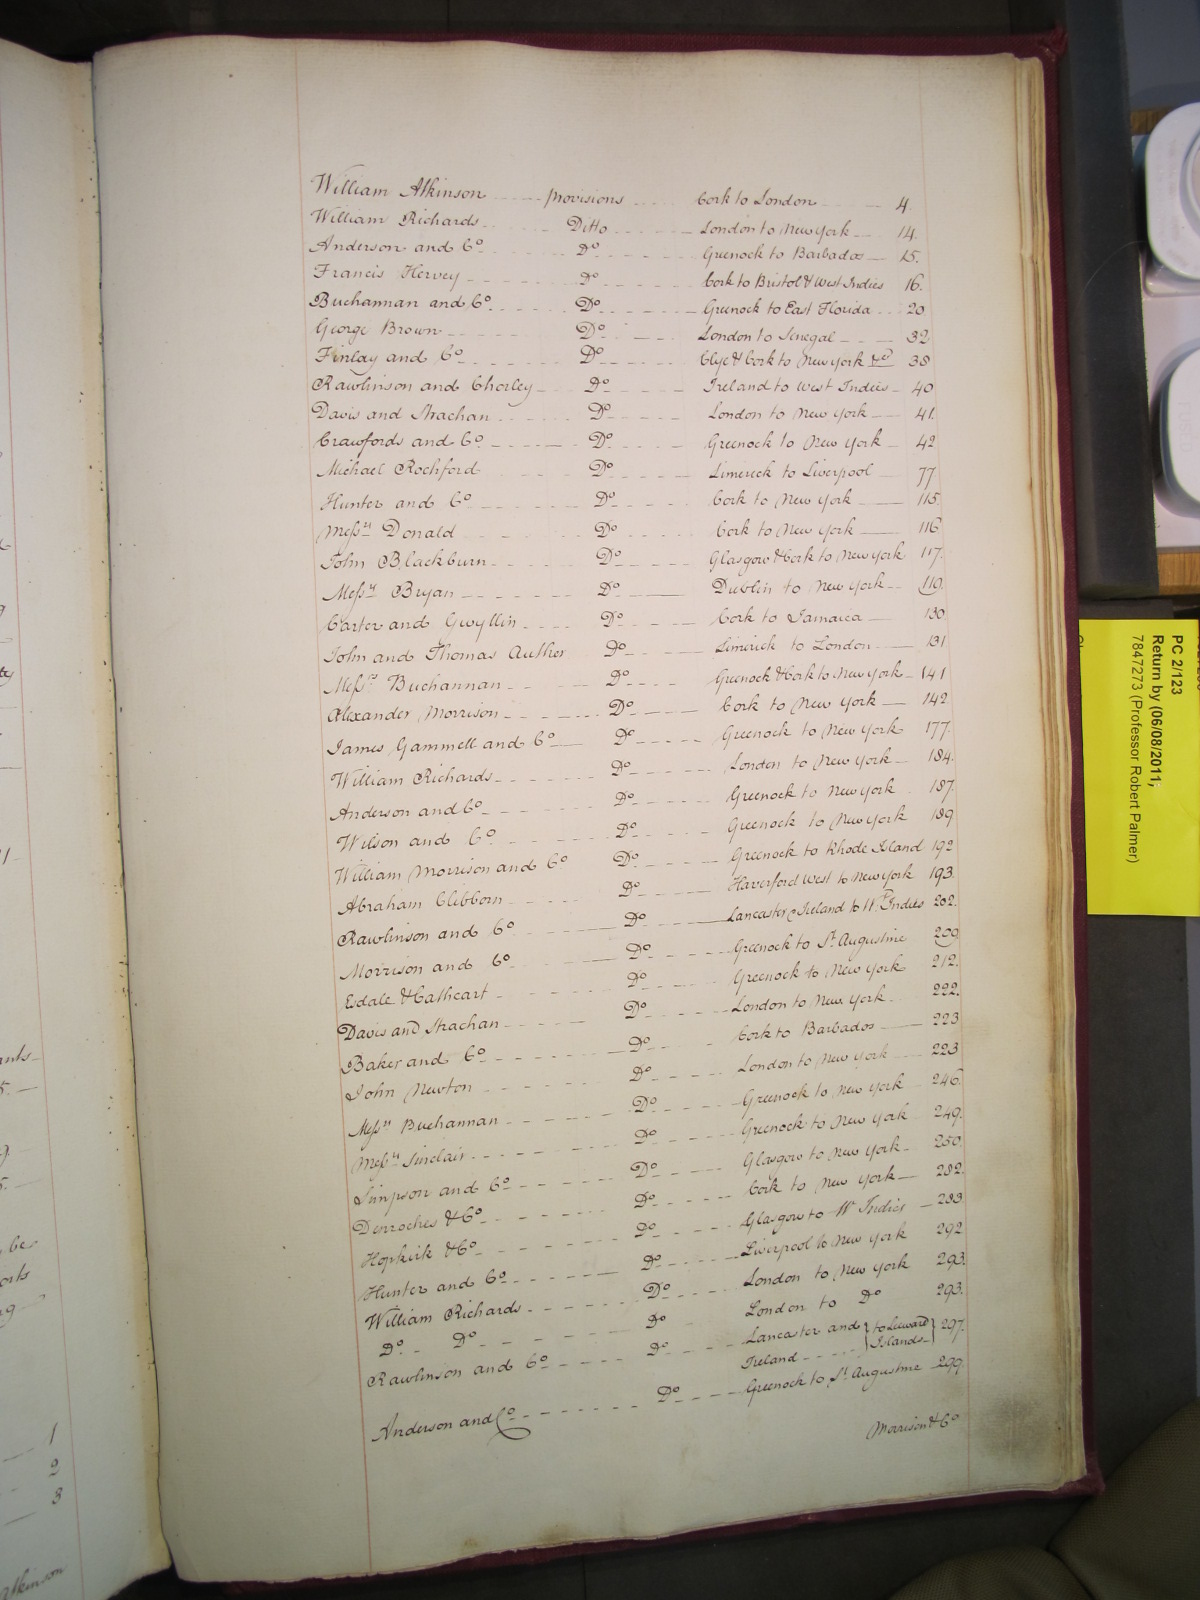 William Atkinson provisions Cork to London 4.
William Richards Ditto London to New York 14.
Anderson and Co. Do. Greenock to Barbados 15.
Francis Hervey Do. Cork to Bristol & West Indies 16.
Buchannan and Co. Do. Greenock to East Florida 20
George Brown Do. London to Senegal 32
Finlay and Co. Do. Clye & Cork to New York &ca. 38
Rawlinson and Chorley Do. Ireland to West Indies 40
Davis and Strachan Do. London to New York 41.
Crawfords and Co. Do. Greenock to New York 42
Michael Rochford Do. Limerick to Liverpool 77
Hunter and Co. Do. Cork to New York 115
Messrs. Donald Do. Cork to New York 116
John Blackburn Do. Glasgow & Cork to New York 117.
Messrs. Bryan Do. Dublin to New York 119.
Carter and Gwyllin Do. Cork to Jamaica 130
John and Thomas Auther Do. Limerick to London 131
Messrs. Buchannan Do. Greenock & Cork to New York 141
Alexander Morrison Do. Cork to New York 142
James Gammell and Co. Do. Greenock to New York 177.
William Richards Do. London to New York 184.
Anderson and Co. Do. Greenock to New York 187.
Wilson and Co. Do. Greenock to New York 189
William Morrison and Co. Do. Greenock to Rhode Island 192
Abraham Clibborn Do. Haverford West to New York 193.
Rawlinson and Co. Do. Lancaster & Ireland to Wt. Indies 202.
Morrison and Co. Do. Greenock to St. Augustine 209
Esdale & Cathcart Do. Greenock to New York 212.
Davis and Strachan Do. London to New York 222.
Baker and Co. Do. Cork to Barbados 223
John Newton Do. London to New York 223
Messrs. Buchannan Do. Greenock to New York 246.
Messrs. Sinclair Do. Greenock to New York 249.
Simpson and Co. Do. Glasgow to New York 250.
Derroches & Co. Do. Cork to New York 282.
Hopkirk & Co. Do. Glasgow to Wt. Indies 288.
Hunter and Co. Do. Liverpool to New York 292
William Richards Do. London to New York 293.
Do. Do. Do. London to Do 293.
Rawlinson and Co. Do. Lancaster and Ireland to Leeward Islands 297.
Anderson and Co. Do. Greenock to St. Augustine 299.
Morrison & Co
PC 2/123
Return by (06/08/2011;
7847273 (Professor Robert Palmer)
1
2
3
Atkinson